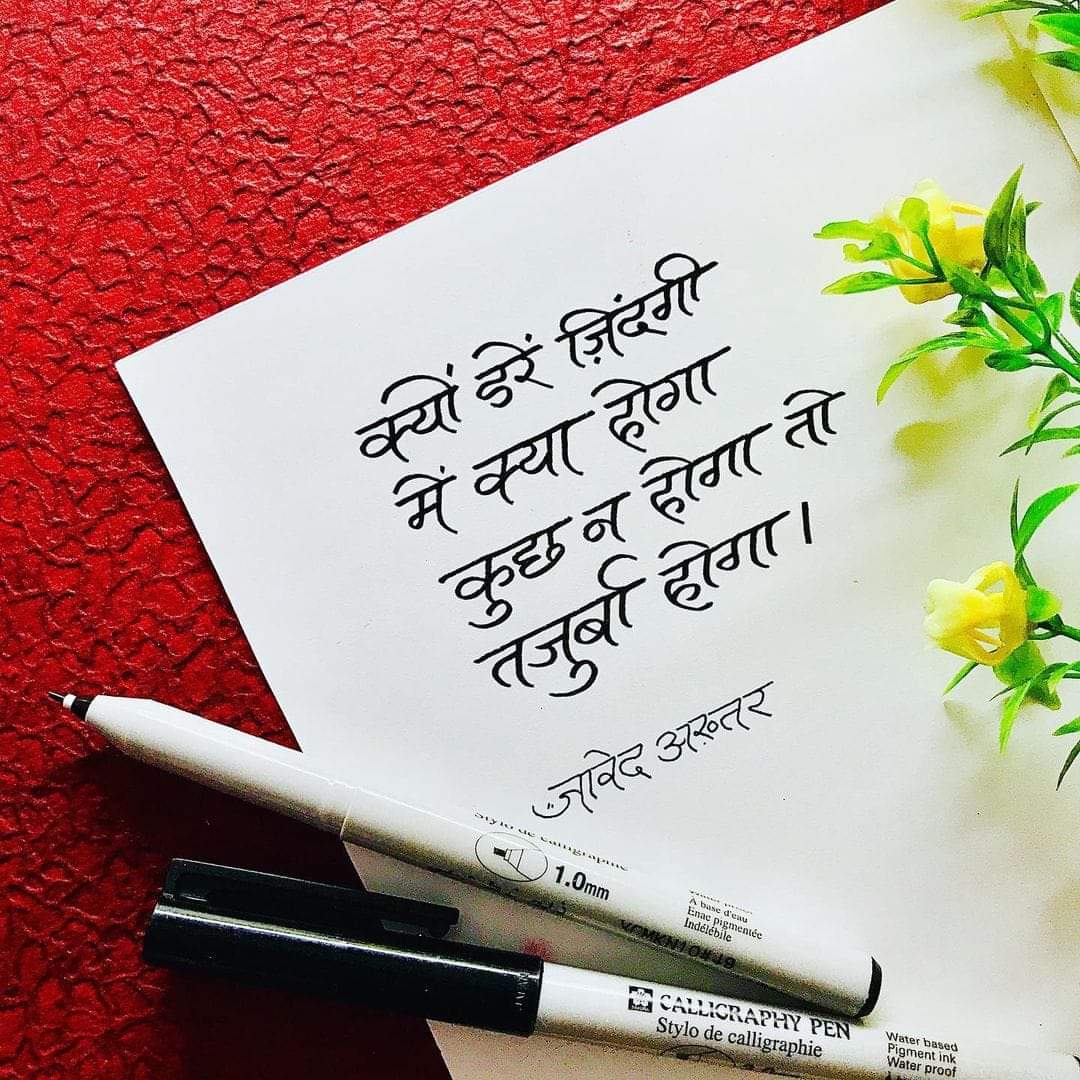 क्यों डरें ज़िंदगी
में क्या होगा
कुछ न होगा तो
तजुर्बा होगा।
जावेद अख़्तर
Stylo de calligraphie
1.0mm
À base d'eau
Enac pigmentée
Indélébile
CALLIGRAPHY PEN
Stylo de calligraphie
Water based
Pigment ink
Water proof